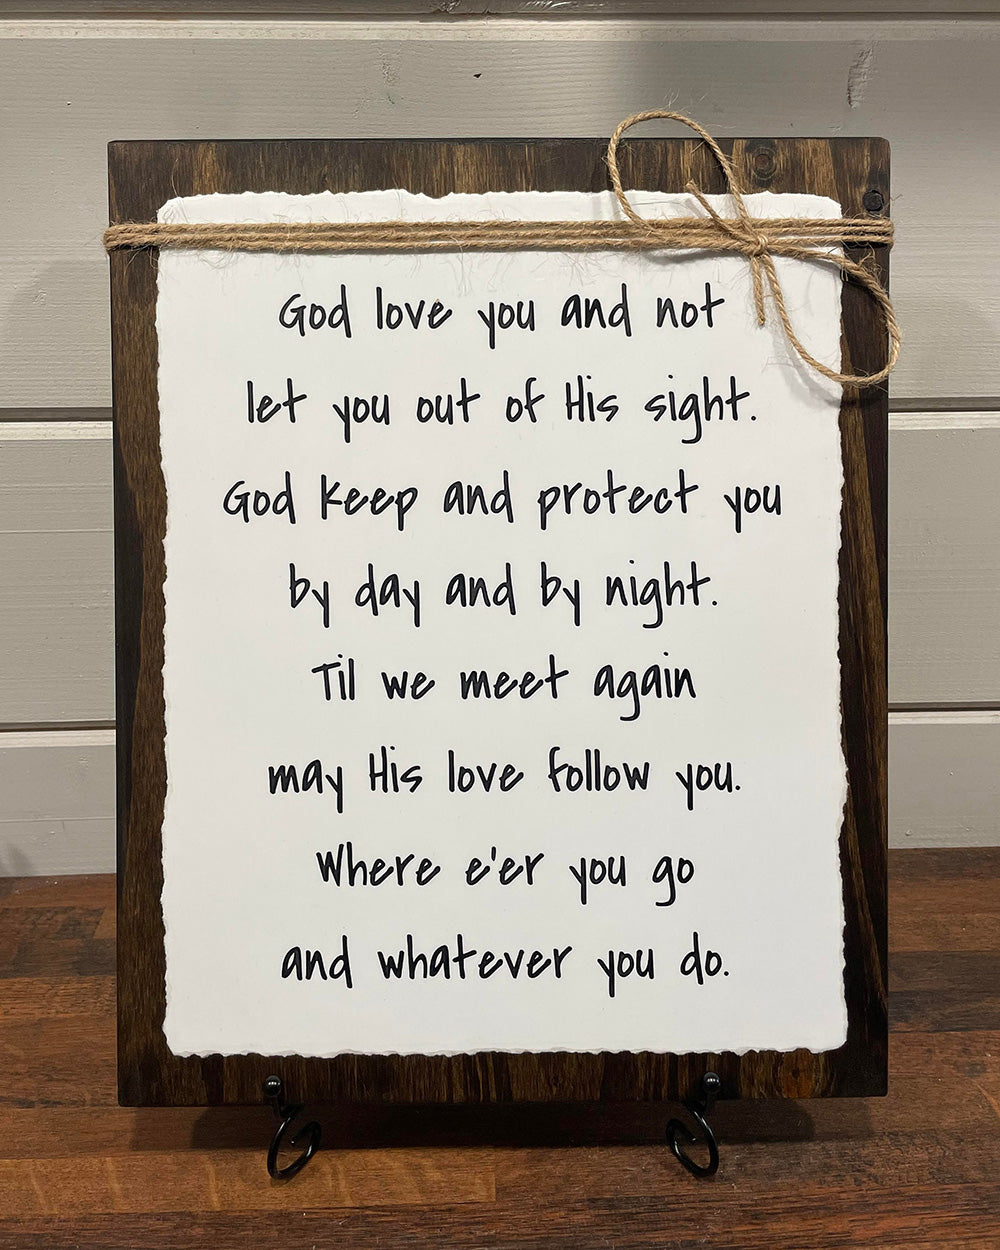 God love you and not
let you out of His sight.
God keep and protect you
by day and by night.
Til we meet again
may His love follow you.
Where e'er you go
and whatever you do.